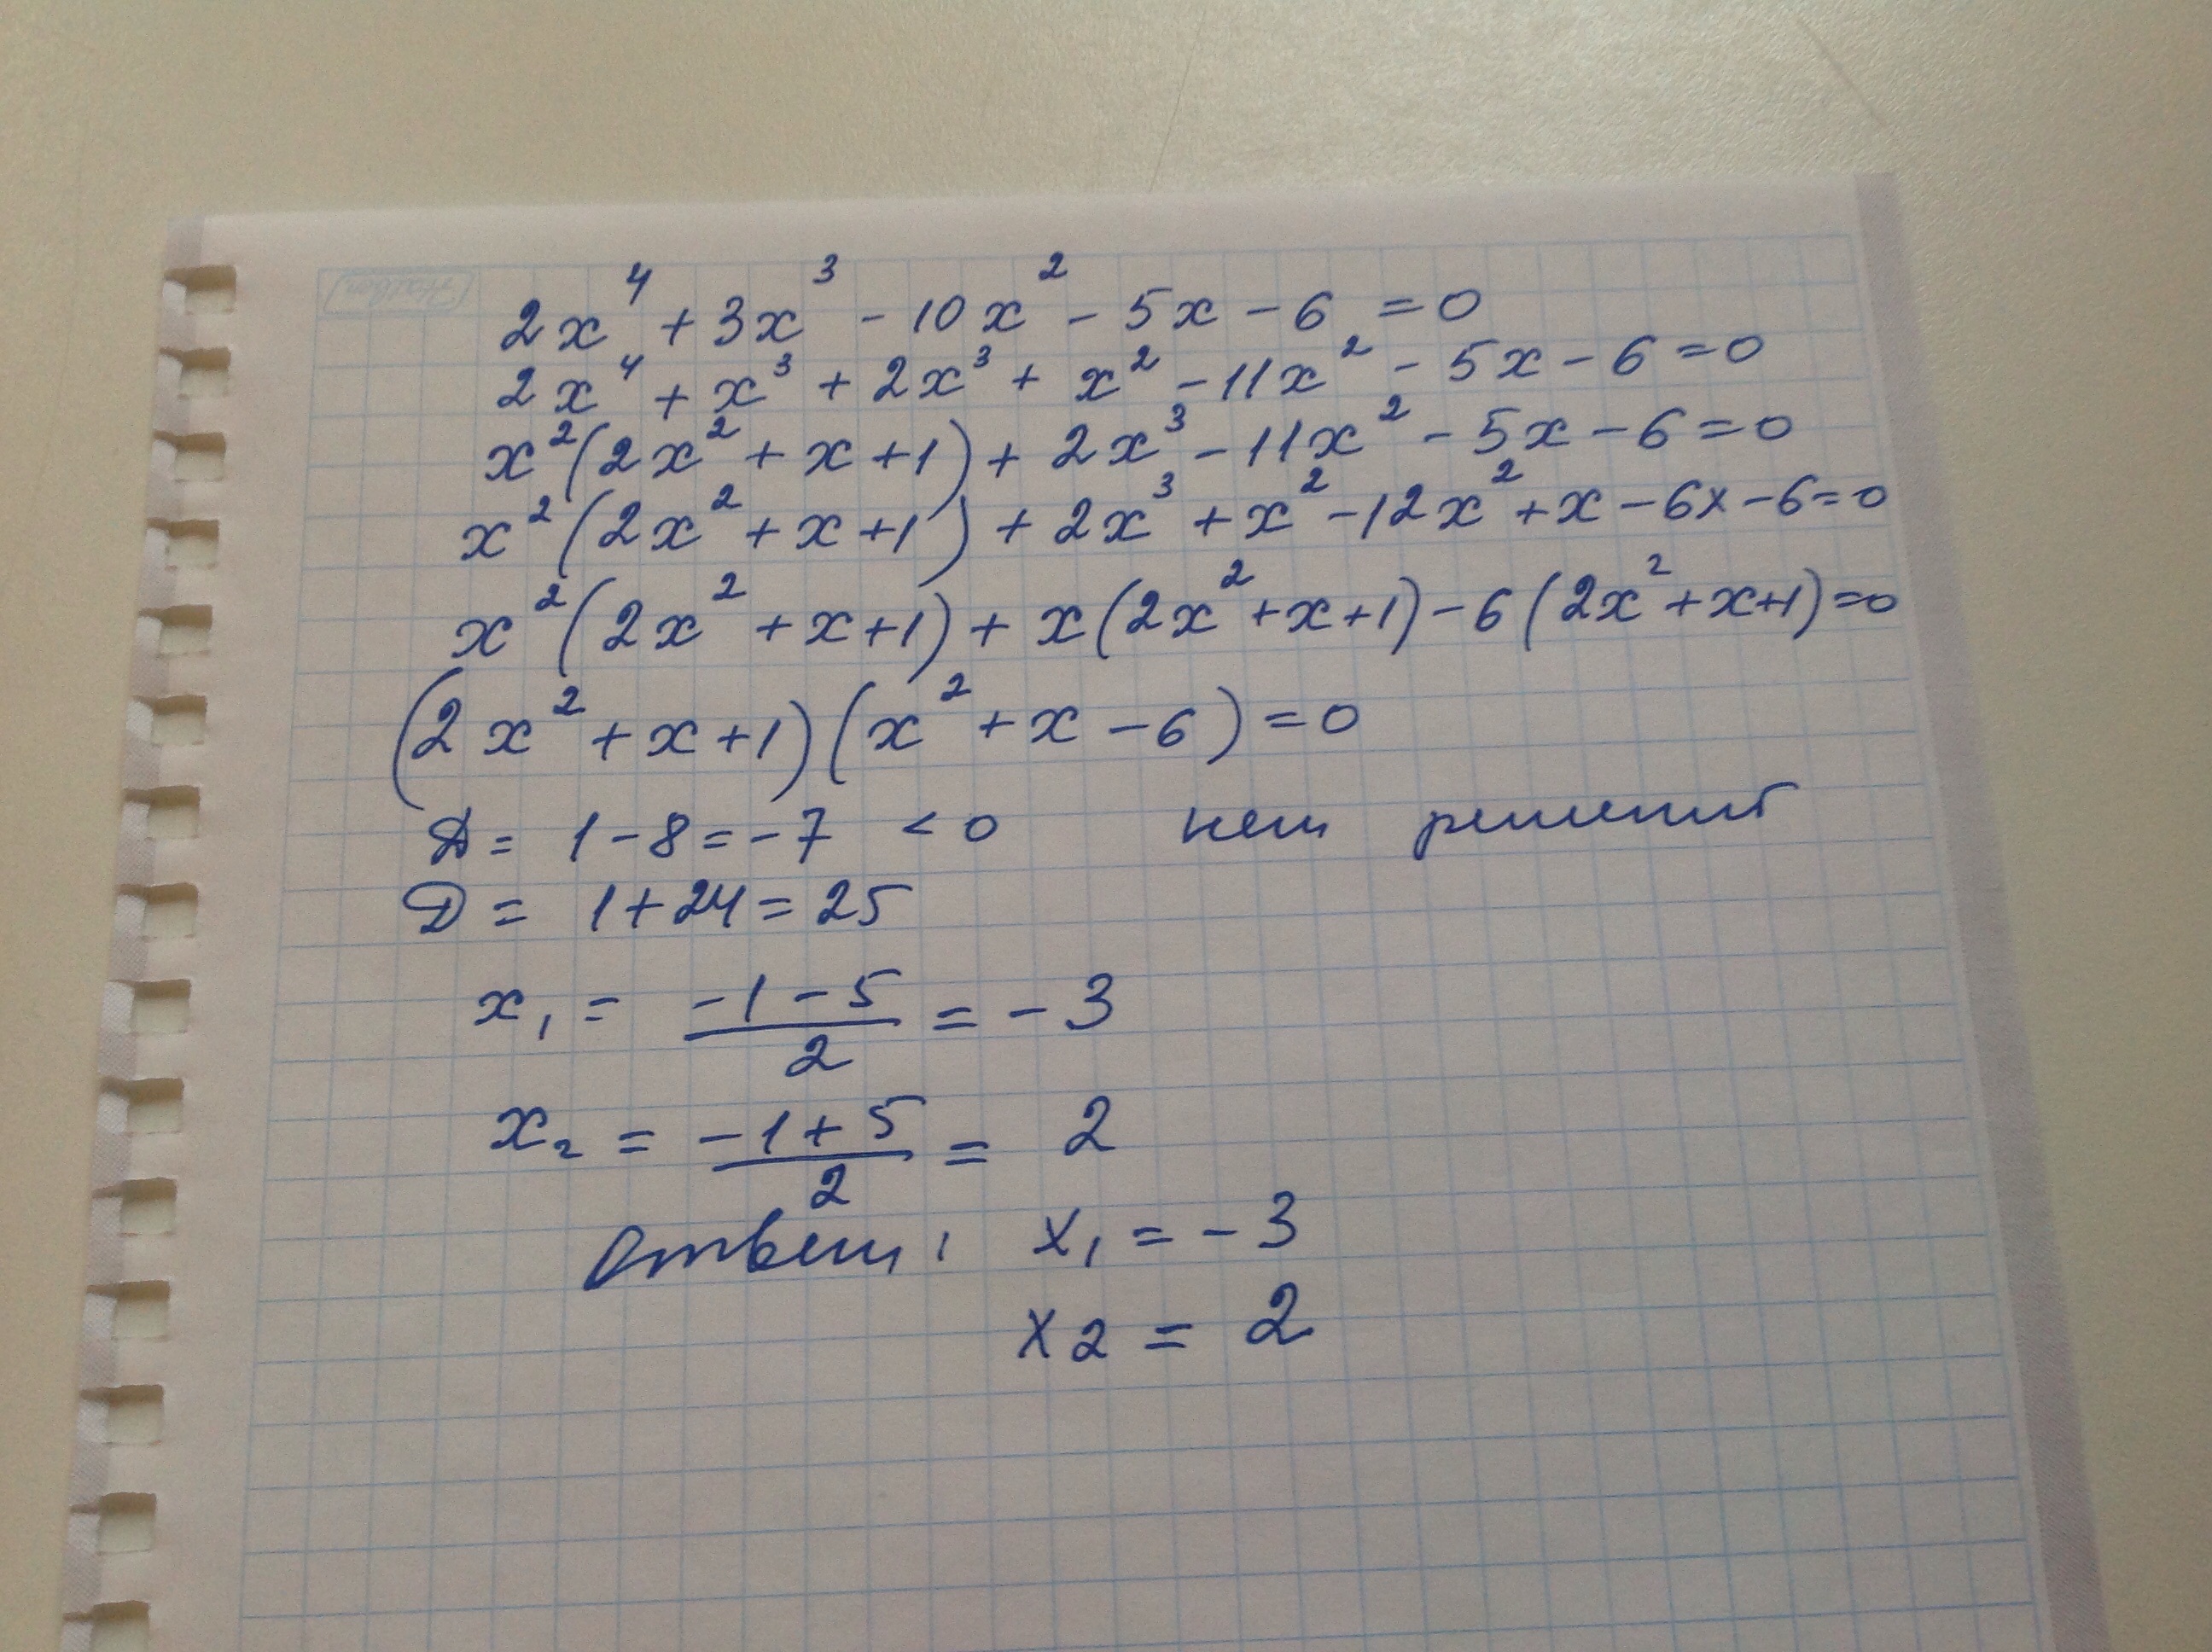 2x⁴ + 3x³ - 10x² - 5x - 6 = 0
2x⁴ + x³ + 2x³ + x² - 11x² - 5x - 6 = 0
x²(2x² + x + 1) + 2x³ - 11x² - 5x - 6 = 0
x²(2x² + x + 1) + 2x³ + x² - 12x² + x - 6x - 6 = 0
x²(2x² + x + 1) + x(2x² + x + 1) - 6(2x² + x + 1) = 0
(2x² + x + 1)(x² + x - 6) = 0
Д = 1 - 8 = -7 < 0 нет решений
Д = 1 + 24 = 25
x₁ = (-1 - 5)/2 = -3
x₂ = (-1 + 5)/2 = 2
Ответ: x₁ = -3
x₂ = 2